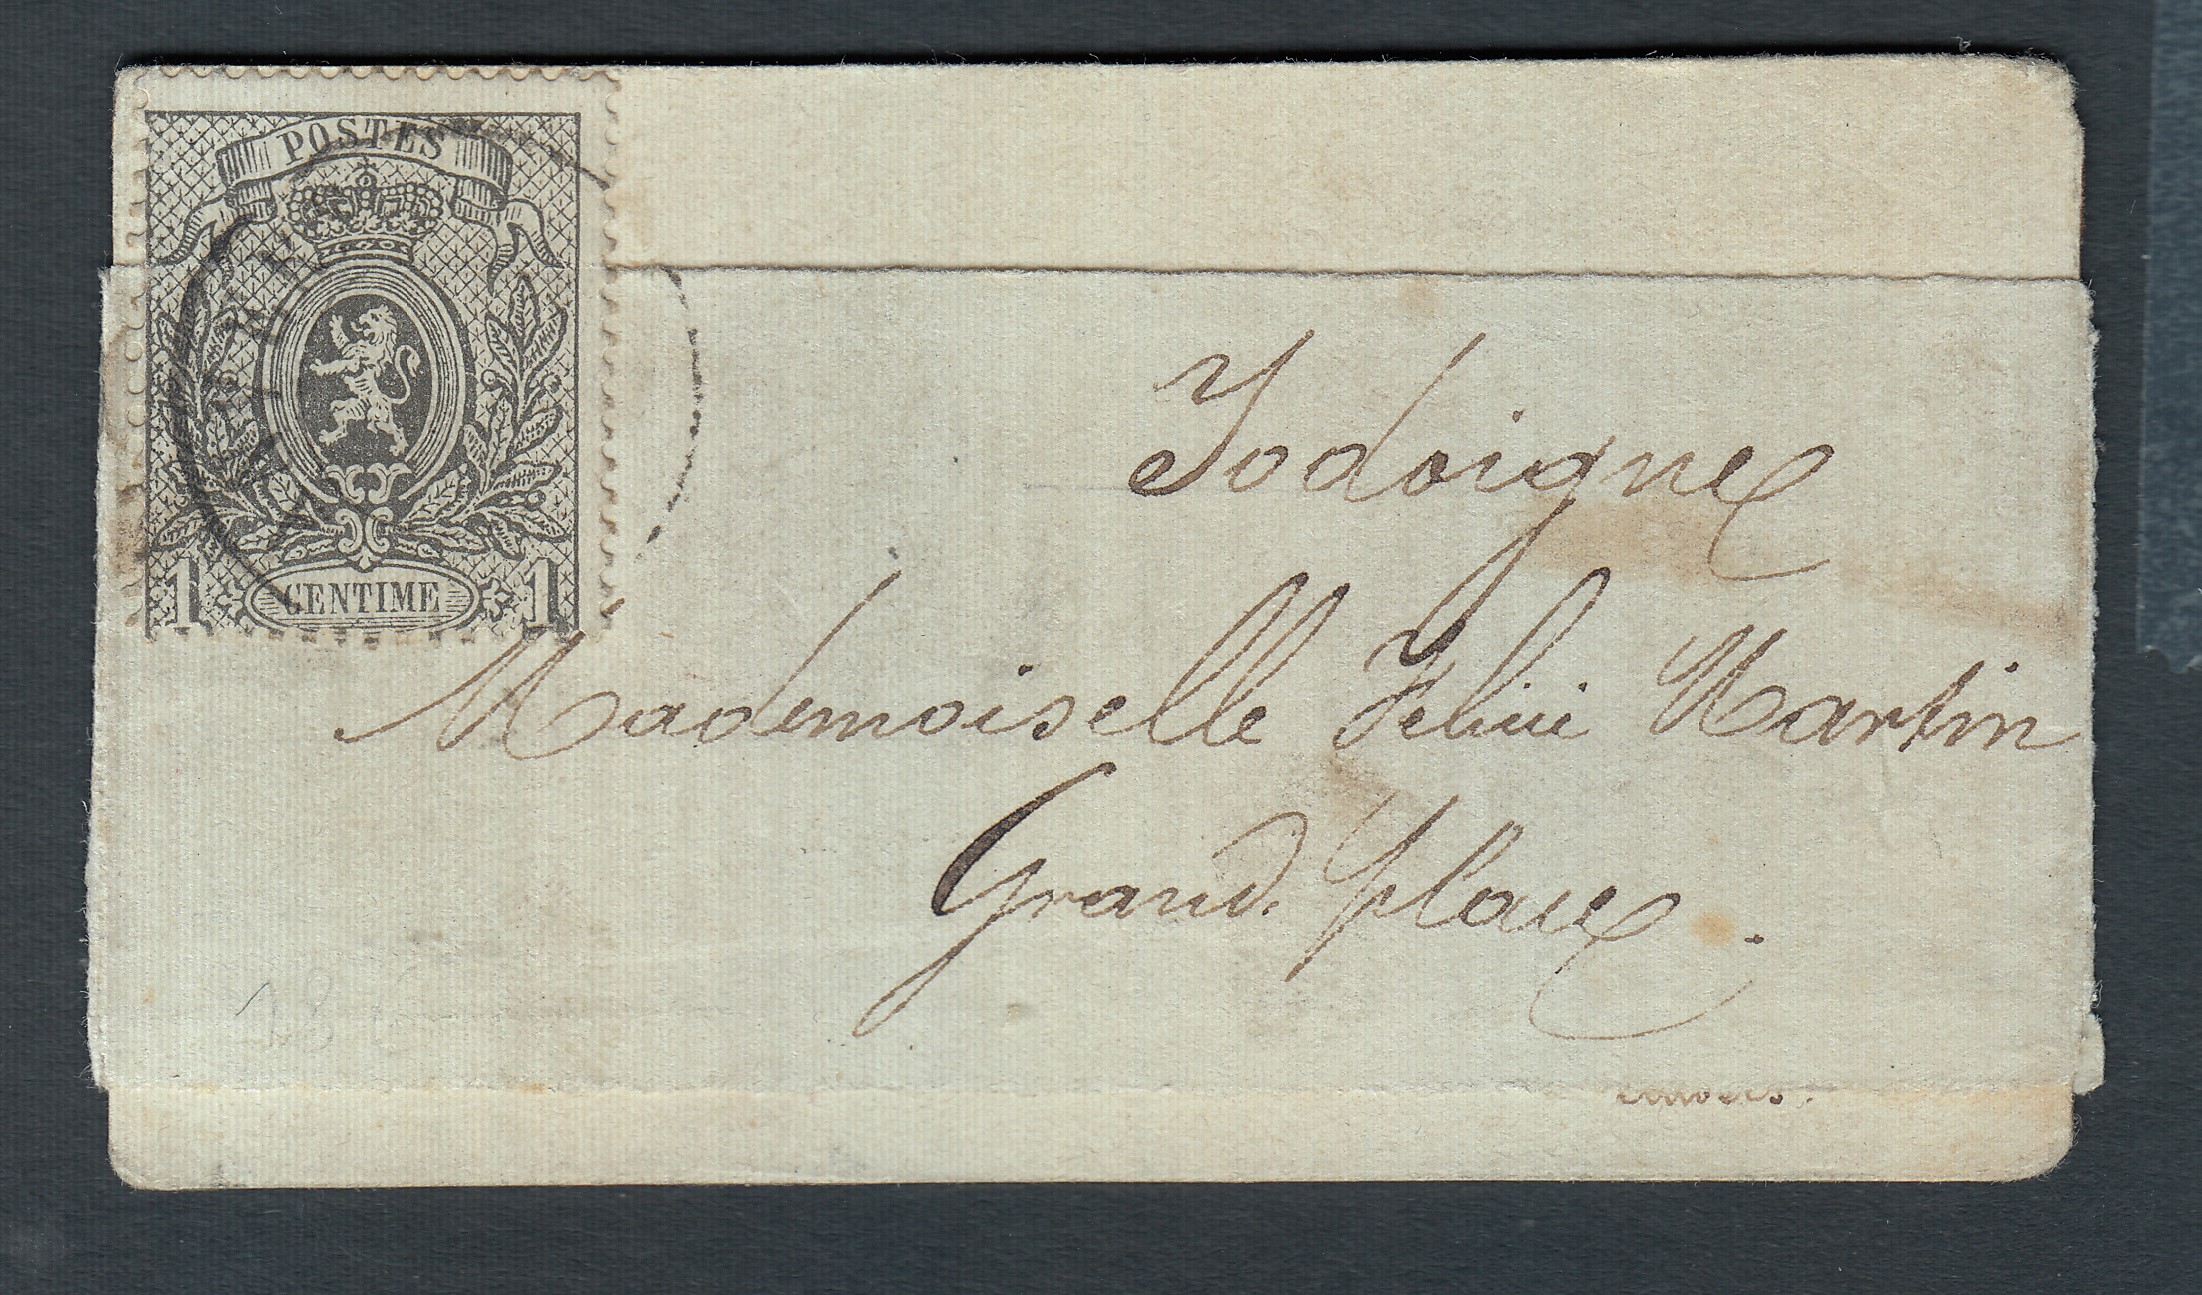 POSTES
1 CENTIME 1
Jodoigne
Mademoiselle Félicie Martin
Grand place.